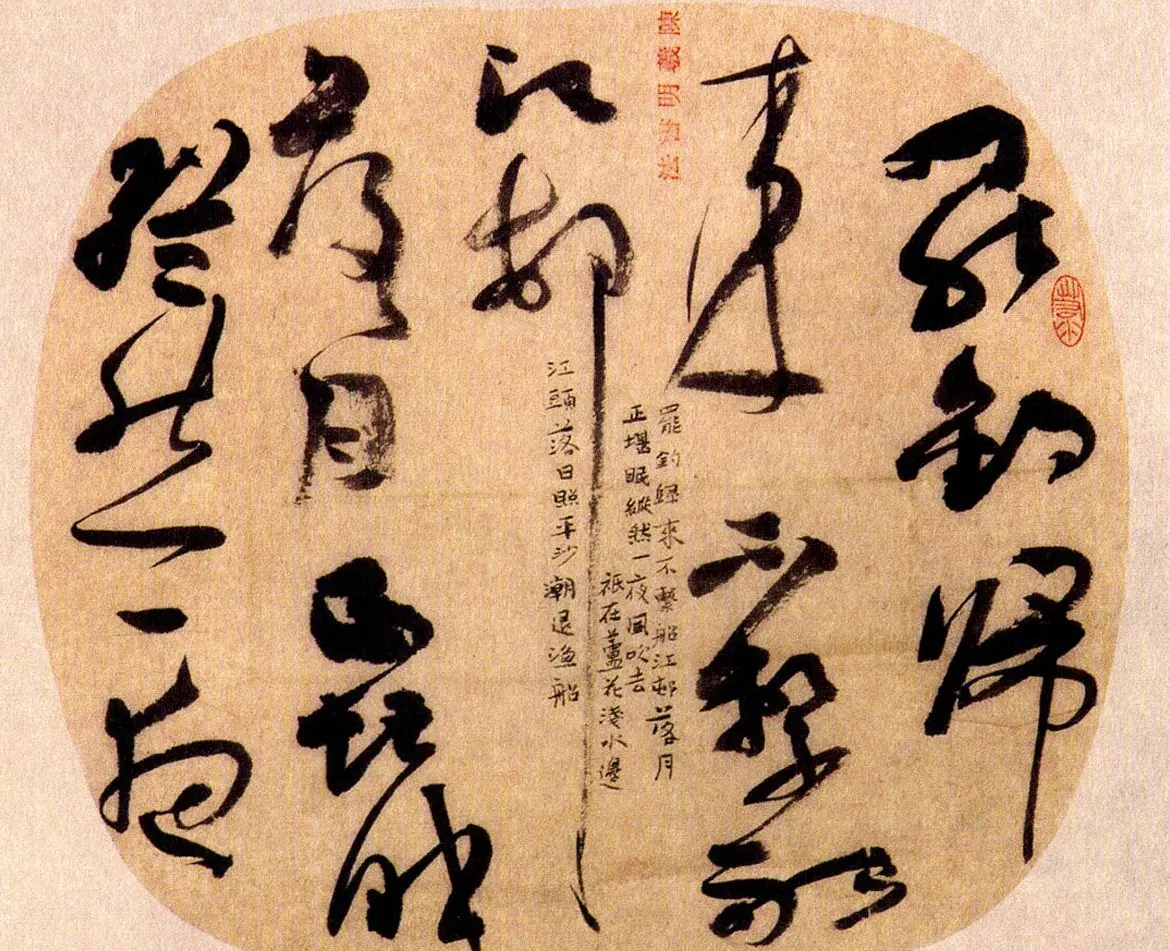 罷釣歸
來不繫船
江邨
落月正堪眠
縱然一夜
罷釣歸來不繫船江邨落月
正堪眠縱然一夜風吹去
祇在蘆花淺水邊
江頭落日照平沙潮退漁船